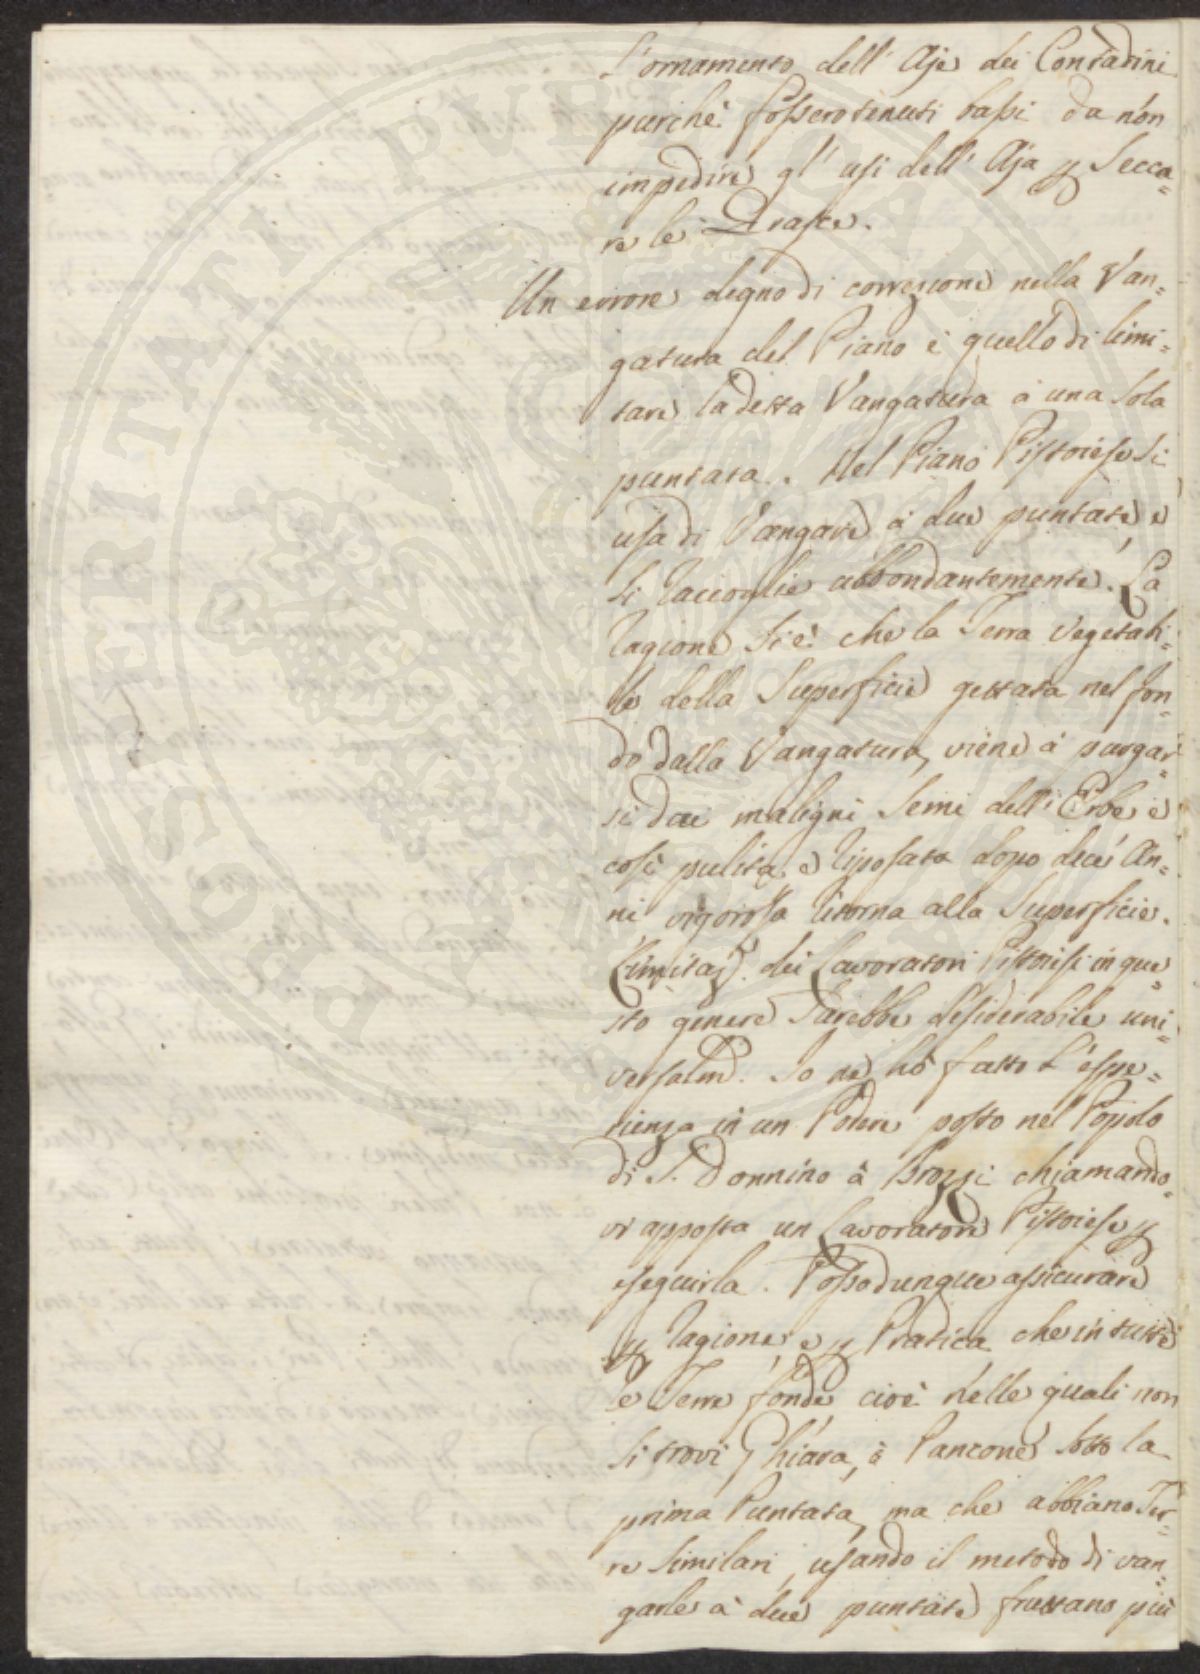 L'ornamento dell'Aje dei Contadini
purchè fossero tenuti bassi da non
impedire gl'usi dell'Aja p Secca=
re le Grasce.
Un errore degno di correzione nella Van=
gatura del Piano è quello di limi=
tare la detta Vangatura à una sola
puntata. Nel Piano Pistoiese si
usa di Vangare à due puntate, e
si raccoglie abbondantemente. La
ragione si è che la Terra vegetabi=
le della Superficie gettata nel fon=
do dalla Vangatura, viene à purgar=
si dai maligni semi dell'Erbe e
così pulita, e riposata dopo dieci An=
ni vigorosa ritorna alla Superficie.
L'imitaz.e dei Lavoratori Pistoiesi in que=
sto genere sarebbe desiderabile uni=
versalm. Io ne hò fatto l'espe=
rienza in un Podere posto nel Popolo
di S. Donnino à Brozzi chiamando=
vi apposta un Lavoratore Pistoiese p
eseguirla. Posso dunque assicurare
p ragione, e p Pratica che in tutte
le Terre fonde cioè nelle quali non
si trovi Ghiara, ò Pancone sotto la
prima Puntata, ma che abbiano Ter=
re similari, usando il metodo di van=
garle à due puntate fruttano più
PROSPERITATI PUBLICAE